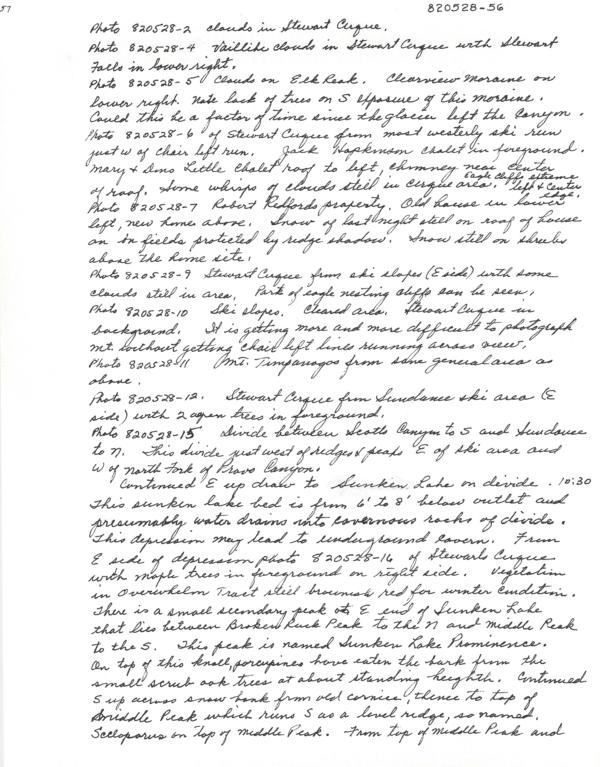 57
820528-56
Photo 820528-2 clouds in Stewart Cirque.
Photo 820528-4 Vaillike clouds in Stewart Cirque with Stewart
Falls in lower right.
Photo 820528-5 Clouds on Elk Peak. Clearview Moraine on
lower right. Note lack of trees on S exposure of this moraine.
Could this be a factor of time since the glacier left the Canyon.
Photo 820528-6 of Stewart Cirque from most westerly ski run
just W of chair left run. Jack Hopkinson chalet in foreground.
Mary & Dons Little Chalet roof to left, chimney near center
of roof. Some whisps of clouds still in cirque area. Eagle Cliffs extreme
left & center
edge.
Photo 820528-7 Robert Redfords property. Old house in lower
left, new home above. Snow of last night still on roof of house
an in fields protected by ridge shadow. Snow still on shrubs
above the home site.
Photo 820528-9 Stewart Cirque from ski slopes (E side) with some
clouds still in area. Part of eagle nesting cliffs can be seen.
Photo 820528-10 Ski slopes. Cleared area. Stewart Cirque in
background. It is getting more and more difficult to photograph
mt. without getting chair left lines running across view.
Photo 820528-11 Mt. Timpanogos from same general area as
above.
Photo 820528-12. Stewart Cirque from Sundance ski area (E
side) with 2 aspen trees in foreground.
Photo 820528-15 Divide between Scotts Canyon to S and Sundance
to N. This divide just west of ridges & peaks E of ski area and
W of North Fork of Provo Canyon.
Continued E up draw to Sunken Lake on divide. 10:30
This sunken lake bed is from 6' to 8' below outlet and
presumably water drains into cavernous rocks of divide.
This depression may lead to underground cavern. From
E side of depression photo 820528-16 of Stewarts Cirque
with maple trees in foreground on right side. Vegetation
in Overwhelm Tract still brownish red for winter condition.
There is a small secondary peak at E end of Sunken Lake
that lies between Broken Rock Peak to the N and Middle Peak
to the S. This peak is named Sunken Lake Prominence.
On top of this knoll, porcupines have eaten the bark from the
small scrub oak trees at about standing heighth. Continued
S up across snow bank from old cornice, thence to top of
Middle Peak which runs S as a level ridge, so named.
Sceloporus on top of Middle Peak. From top of Middle Peak and